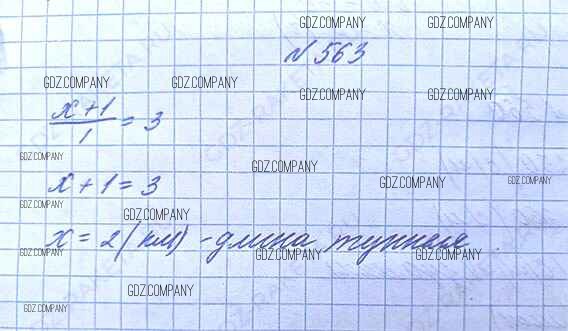 GDZ.COMPANY GDZ.COMPANY
№ 563
GDZ.COMPANY GDZ.COMPANY GDZ.COMPANY GDZ.COMPANY
x+1
/1 = 3
GDZ.COMPANY GDZ.COMPANY
x+1=3
GDZ.COMPANY GDZ.COMPANY
GDZ.COMPANY GDZ.COMPANY
x = 2 (км) - длина туннеля
GDZ.COMPANY GDZ.COMPANY GDZ.COMPANY
GDZ.COMPANY
GDZ.COMPANY